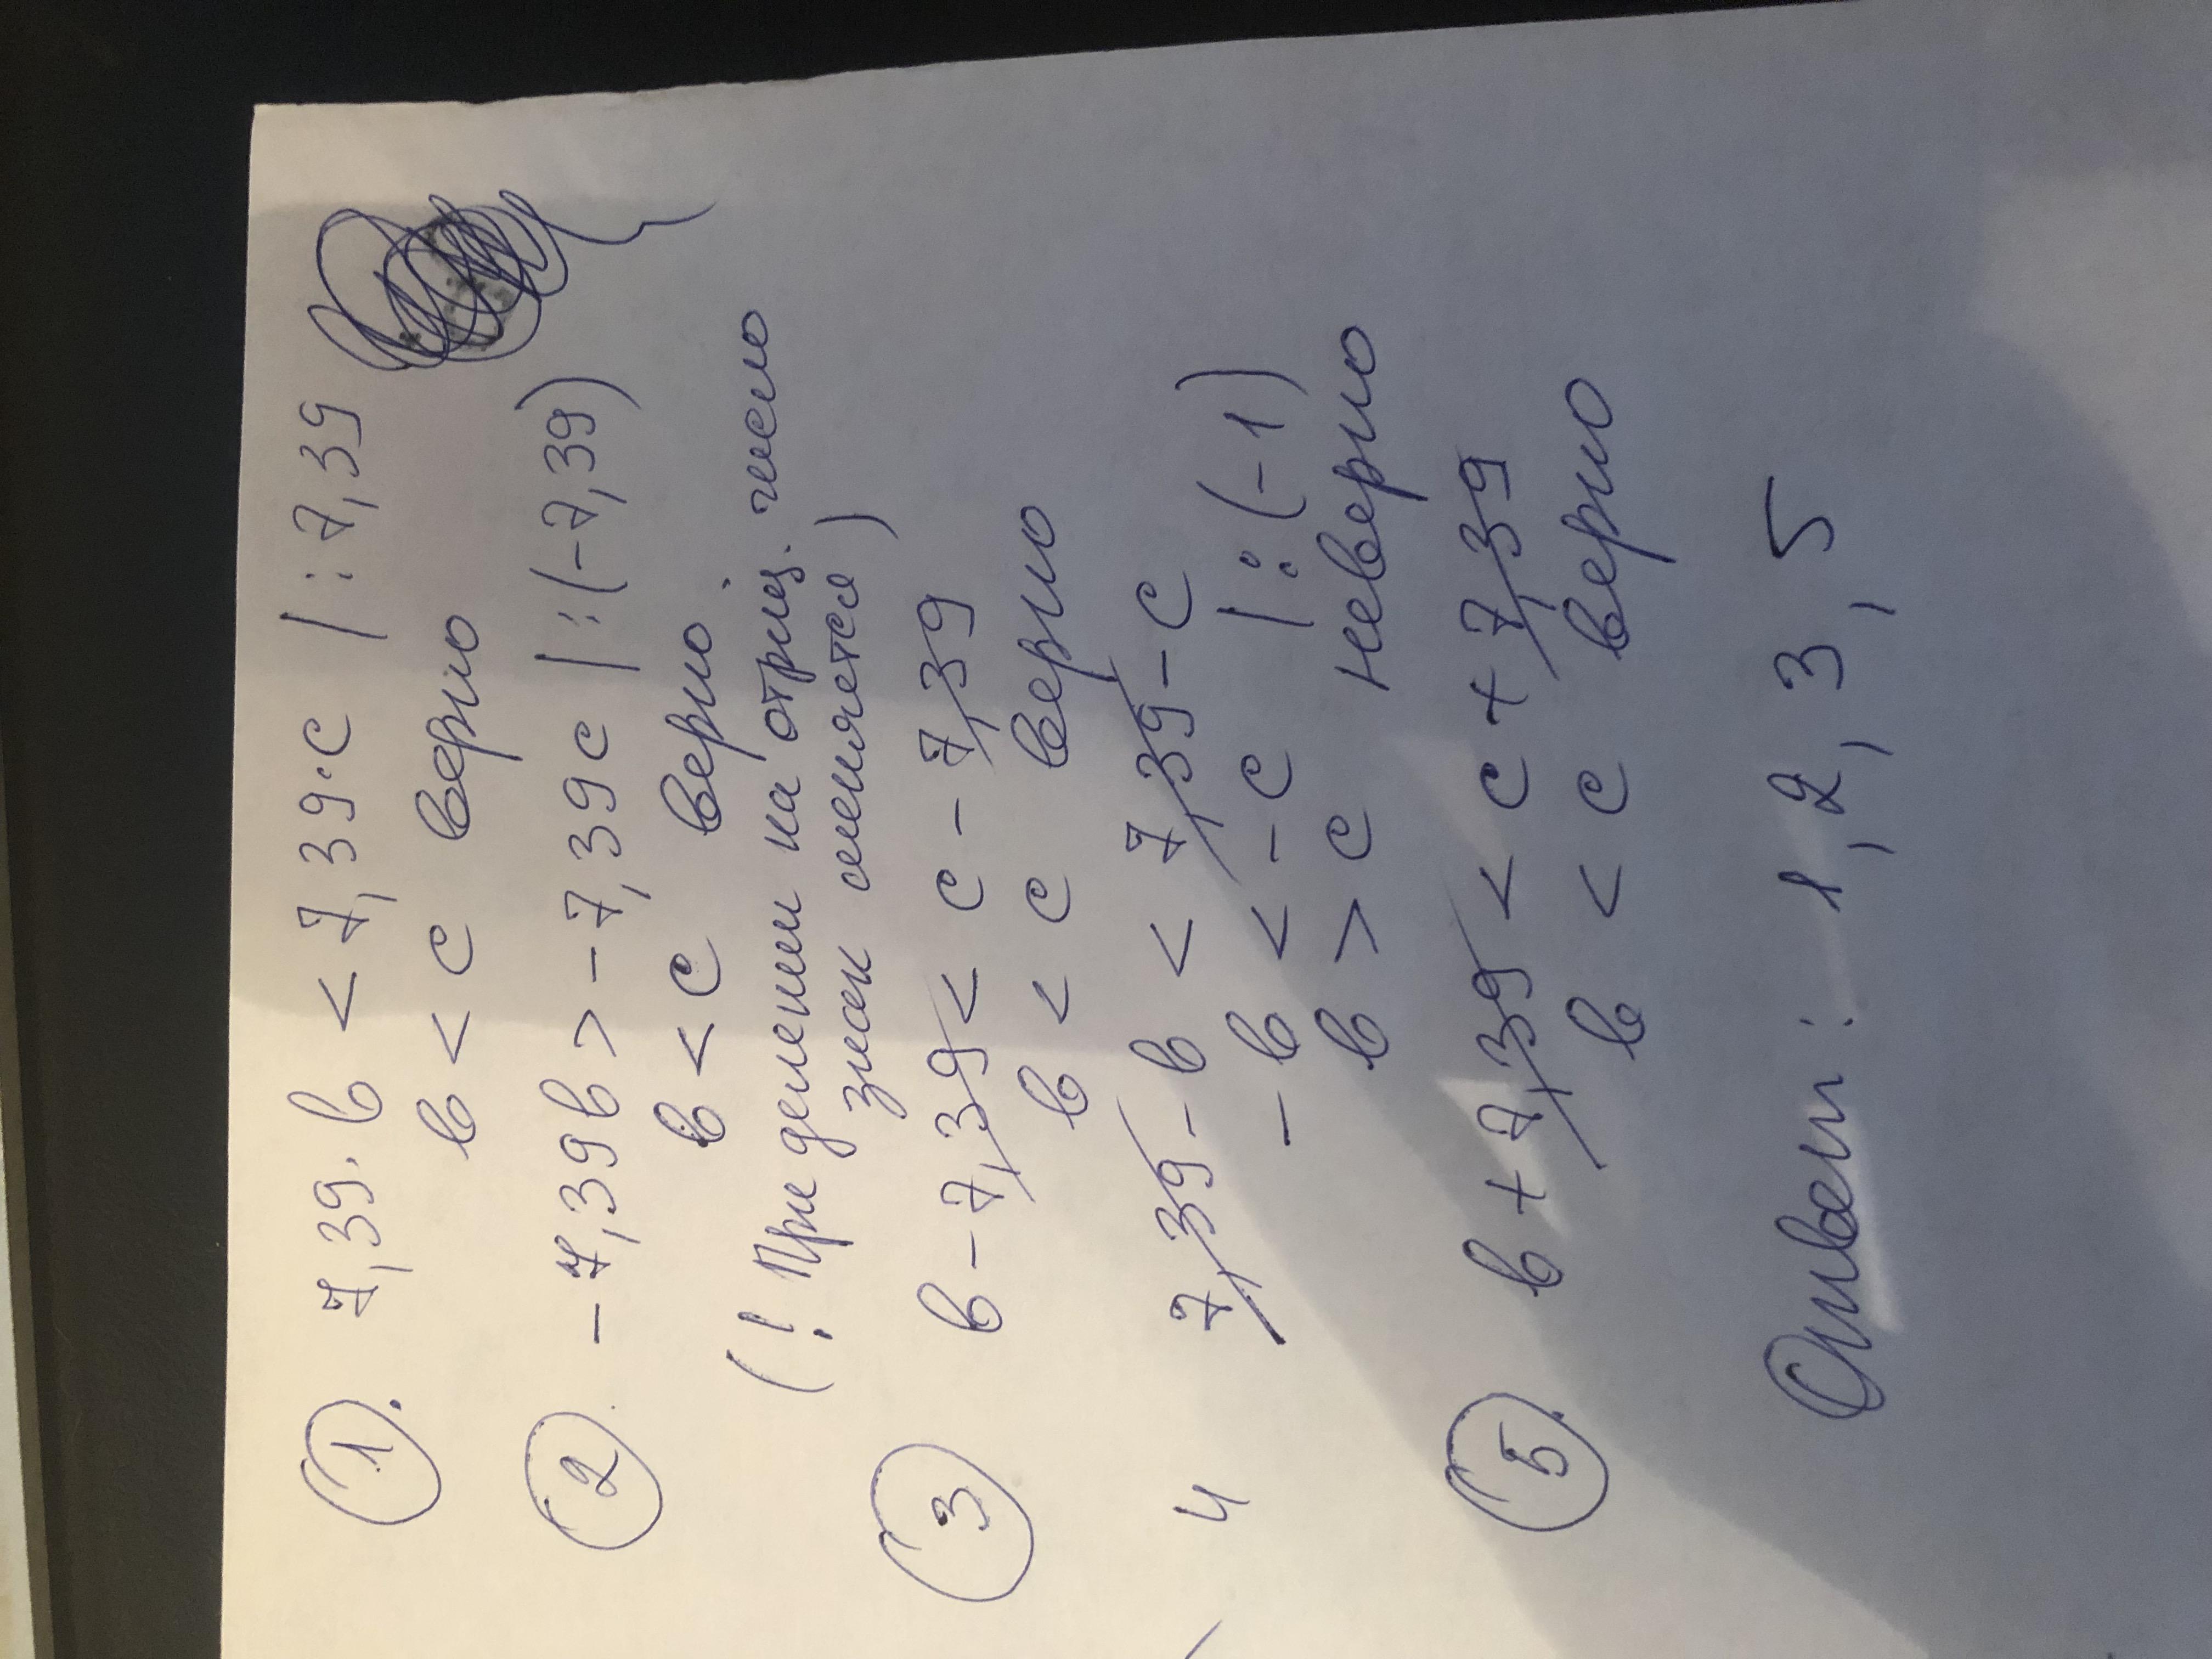 1. 7,39·в < 7,39·с | : 7,39
в < с верно
2. -7,39в > -7,39с | : (-7,39)
в < с верно
(! При делении на отриц. число
знак меняется)
3 в - 7,39 < с - 7,39
в < с верно
4 7,39 - в < 7,39 - с
- в < - с | : (-1)
в > с неверно
5. в + 7,39 < с + 7,39
в < с верно
Ответ: 1, 2, 3, 5